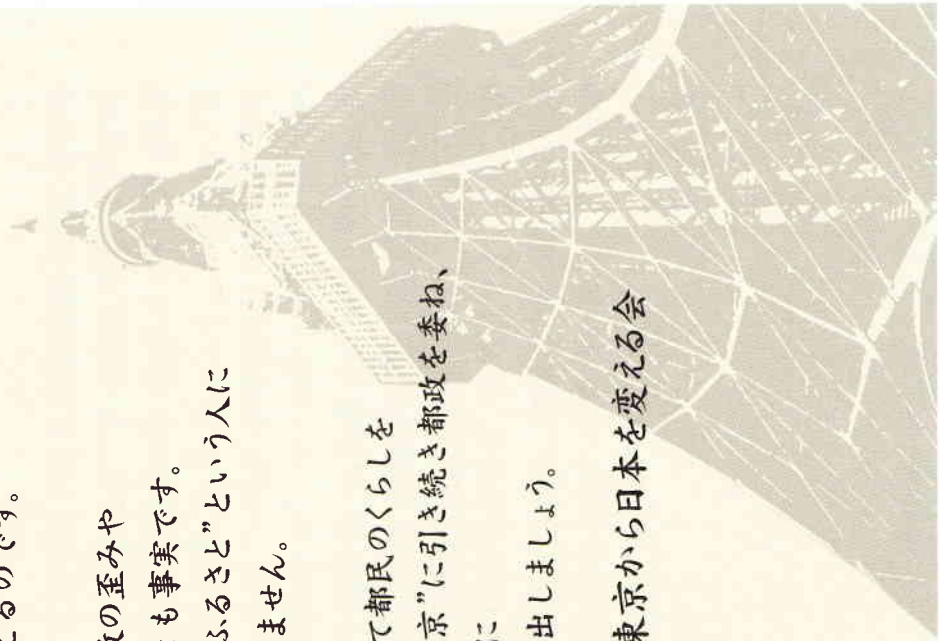 るのです。
の歪みや
も事実です。
ふるさと”という人に
ません。
て都民のくらしを
京”に引き続き都政を委ね、
に
出しましょう。
東京から日本を変える会